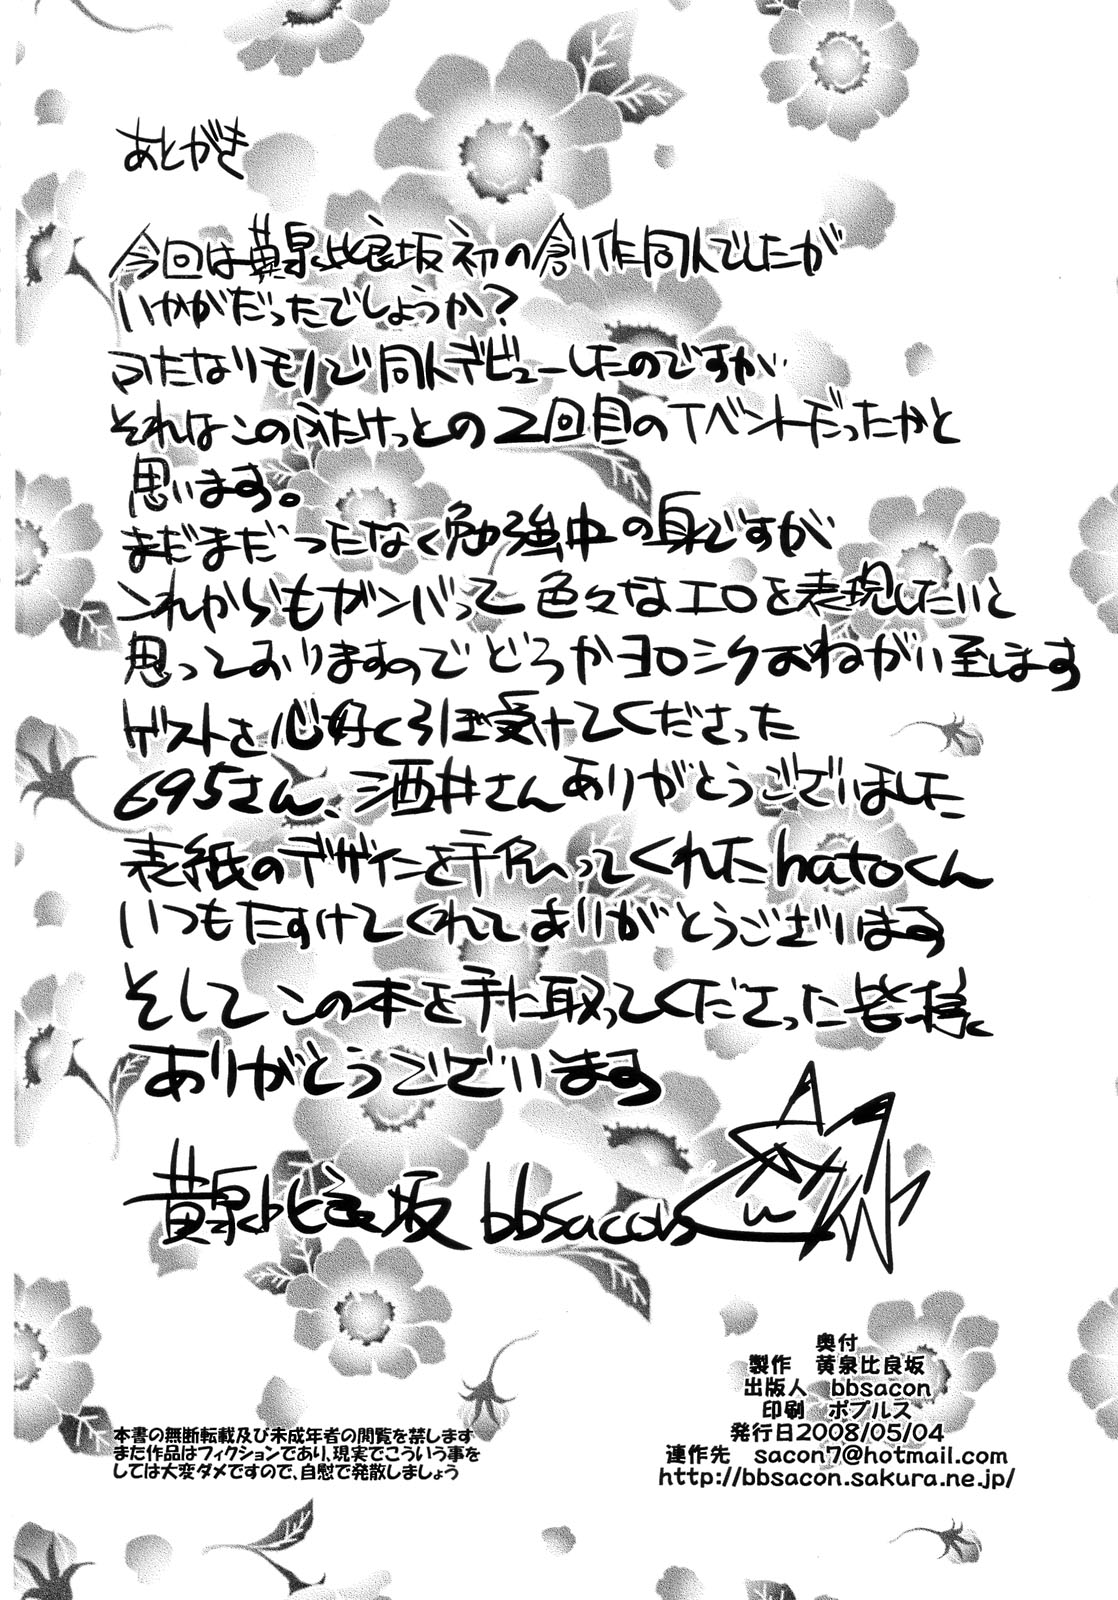 あとがき
今回は黄泉比良坂初の創作同人でしたが
いかがだったでしょうか?
ふたなりモノで同人デビューしたのですが
それはこのふたけっとの2回目のイベントだったかと
思います。
まだまだつたなく勉強中の身ですが
これからもガンバって色々なエロを表現したいと
思っておりますのでどうかヨロシクおねがい至します
ゲストを心好く引き受けてくださった
695さん、酒井さんありがとうございました
表紙のデザインを手伝ってくれたhatoくん
いつもたすけてくれてありがとうございます
そしてこの本を手に取ってくださった皆様
ありがとうございます
黄泉比良坂 bbsacon
奥付
製作 黄泉比良坂
出版人 bbsacon
印刷 ポプルス
発行日2008/05/04
連作先 sacon7@hotmail.com
http://bbsacon.sakura.ne.jp/
本書の無断転載及び未成年者の閲覧を禁します
また作品はフィクションであり、現実でこういう事を
しては大変ダメですので、自慰で発散しましょう